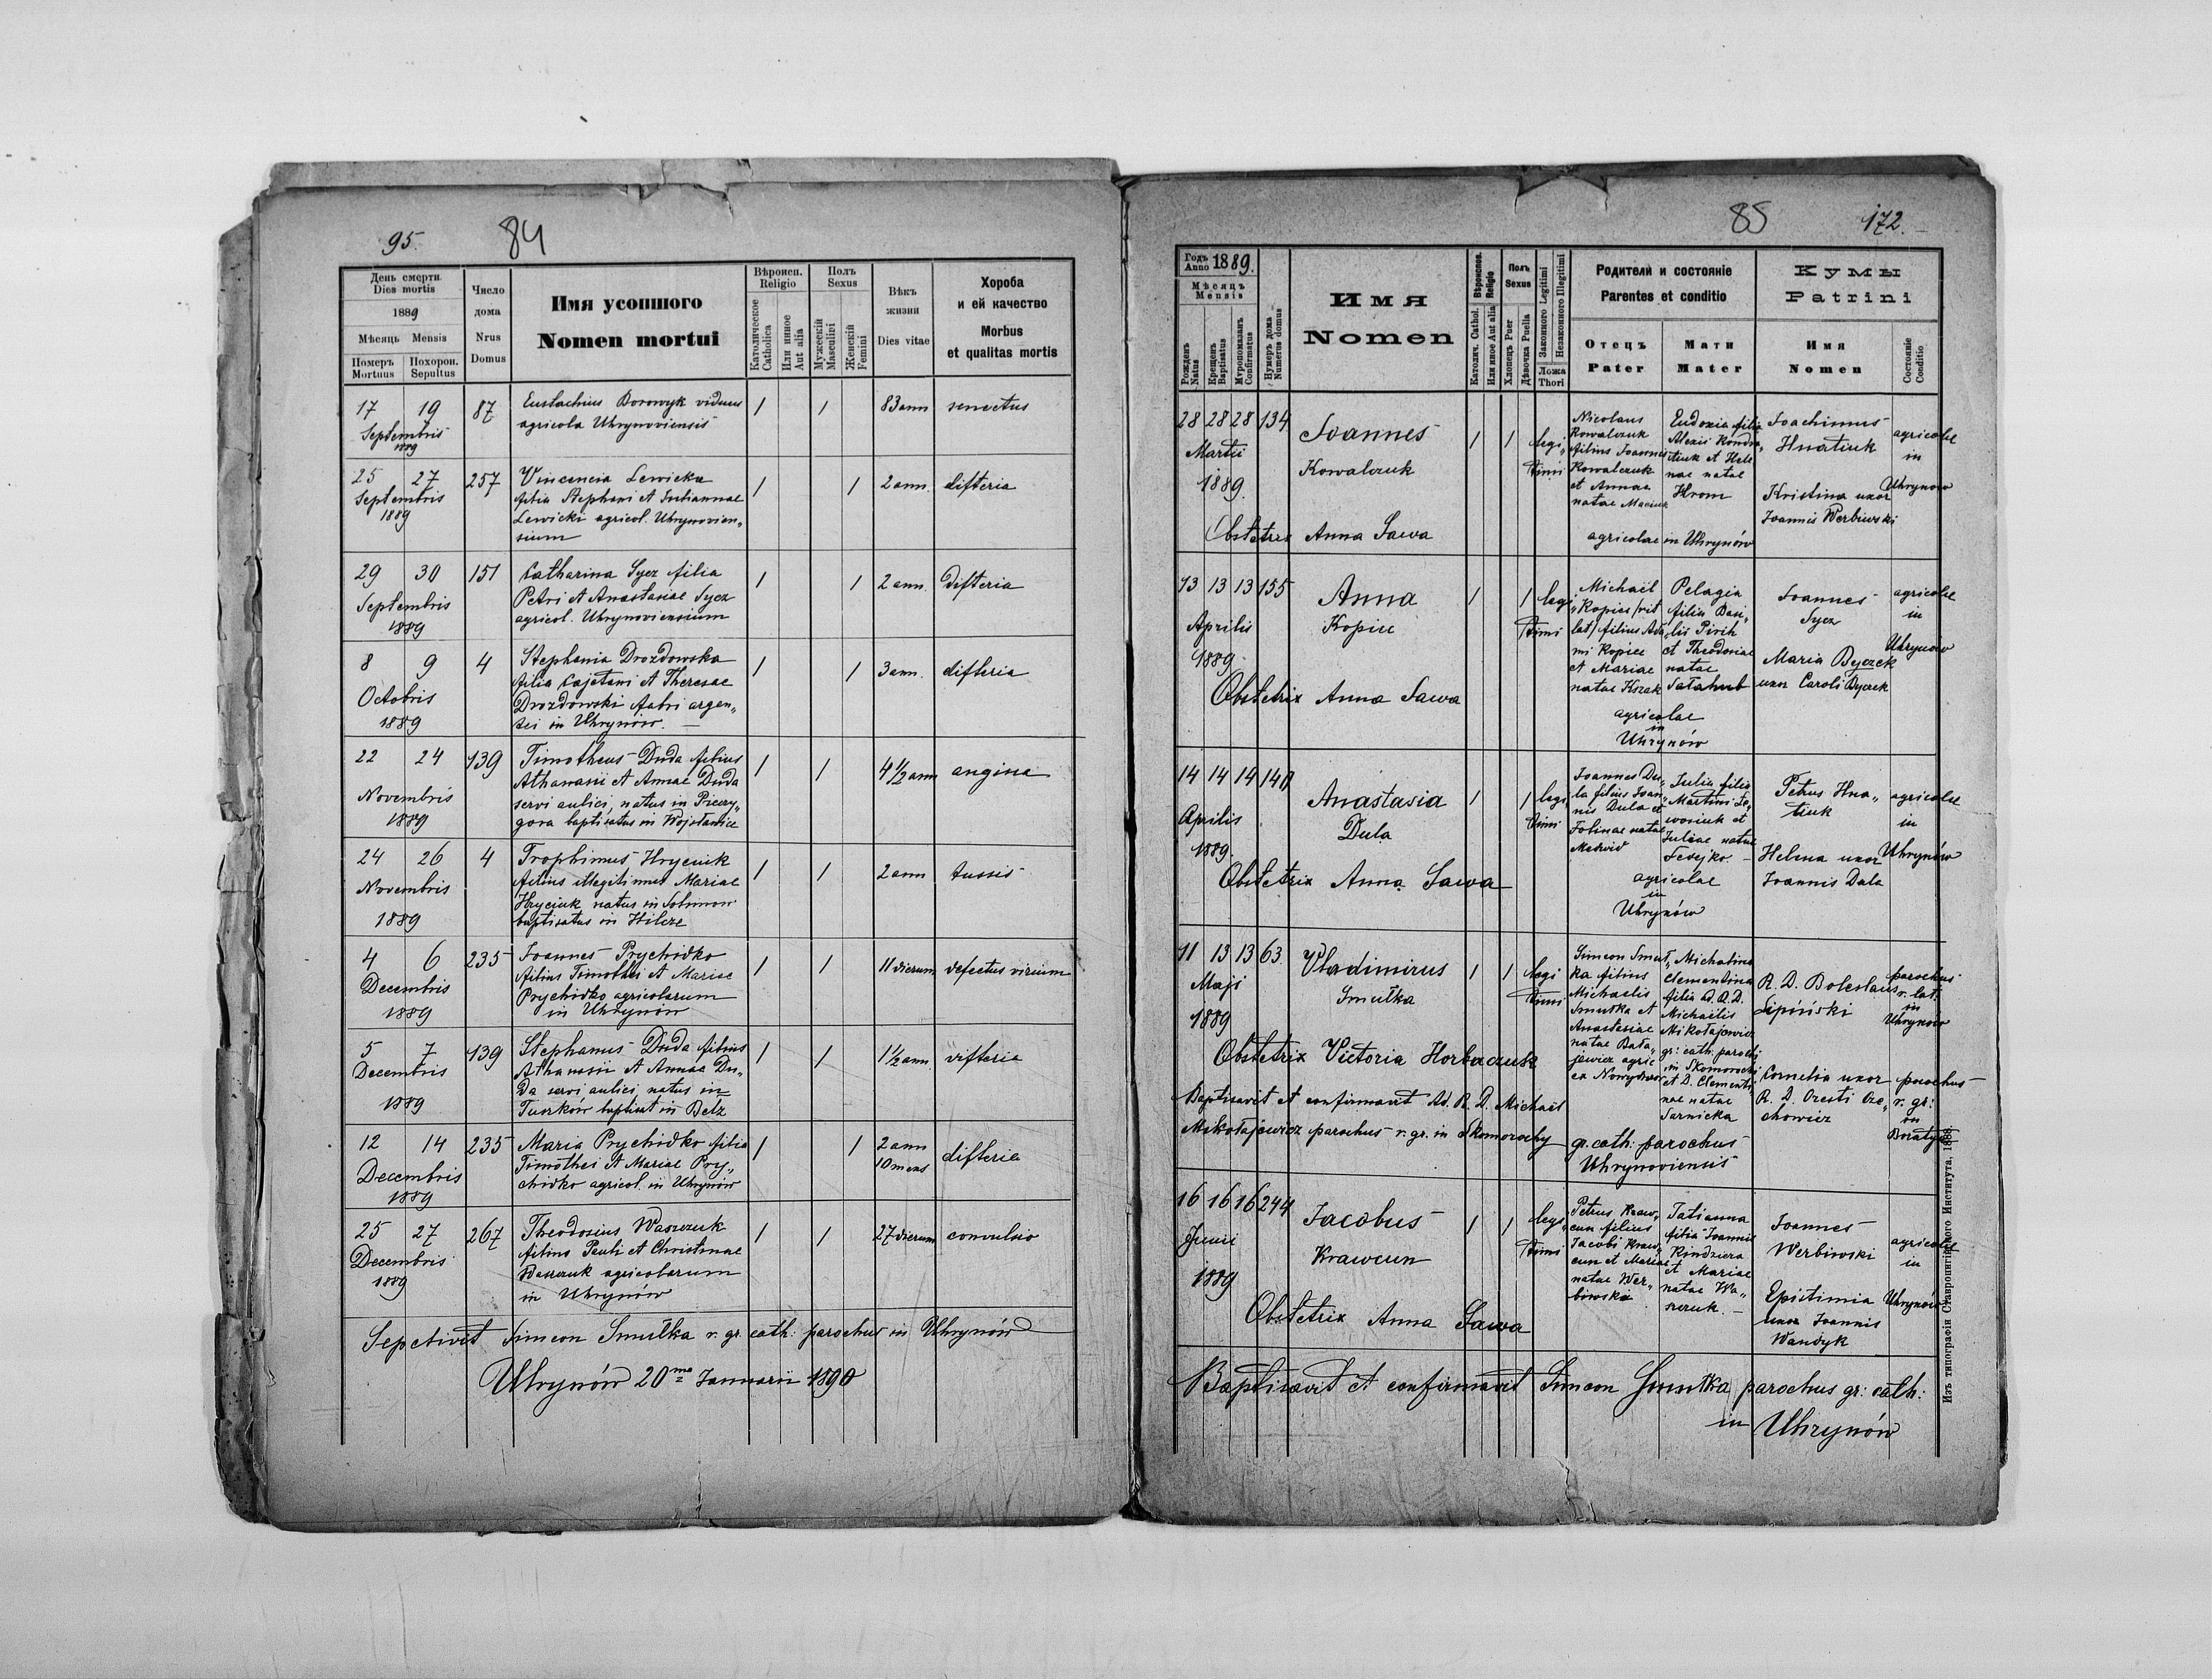 95.
84
День смерти.
Dies mortis
1889
Мѣсяцъ Mensis
Померъ Mortuus
Похорон. Sepultus
Число дома
Nrus Domus
Имя усопшого
Nomen mortui
Вѣроисп.
Religio
Католическое Catholica
Или инное Aut alia
Полъ
Sexus
Мужескій Masculini
Женскій Femini
Вѣкъ жизни
Dies vitae
Хороба
и ей качество
Morbus
et qualitas mortis
17 19 87 Eustachius Borowyk viduus 1 1 83 ann senectus
Septembris agricola Uhrynoviensis
1889
25 27 257 Vincencia Lewicka 1 1 2 ann. difteria
Septembris filia Stephani et Juliannae
1889 Lewicki agricol. Uhrynovien„
sium
29 30 151 Catharina Sycz filia 1 1 2 ann. difteria
Septembris Petri et Anastasiae Sycz
1889 agricol. Uhrynoviensium
8 9 4 Stephania Drozdowska 1 1 3 ann. difteria
Octobris filia Cajetani et Theresae
1889 Drozdowski fabri argen„
tei in Uhrynów.
22 24 139 Timotheus Duda filius 1 1 4 1/2 ann angina
Novembris Athanasii et Annae Duda
1889 servi aulici, natus in Pieczy„
gora baptisatus in Wojsławice
24 26 4 Trophimus Hryciuk 1 1 2 ann tussis
Novembris filius illegitimus Mariae
1889 Hryciuk natus in
baptisatus in Hilcze
4 6 235 Joannes Prychidko 1 1 11 dierum defectus virium
Decembris filius Timothei et Mariae
1889 Prychidko agricolarum
in Uhrynów
5 7 139 Stephanus Duda filius 1 1 1 1/2 ann. difteria
Decembris Athanasii et Annae Du„
1889 da servi aulici natus in
Tuszków baptisat in Bełz
12 14 235 Maria Prychidko filia 1 1 2 ann 10 mens difteria
Decembris Timothei et Mariae Pry„
1889 chidko agricol. in Uhrynów
25 27 267 Theodosius Waszczuk 1 1 27 dierum convulsio
Decembris filius Pauli et Christinae
1889 Waszczuk agricolarum
in Uhrynów
Sepelivit Simeon Smułka r. gr. cath: parochus in Uhrynów
Uhrynów 20ma Januarii 1890
85
172.
Годъ Anno 1889.
Мѣсяцъ
Mensis
Рожденъ Natus
Крещенъ Baptisatus
Мѵропомазанъ Confirmatus
Нумеръ дома Numerus domus
Имя
Nomen
Вѣроиспов. Religio
Католич. Cathol.
Или иное Aut alia
Полъ Sexus
Хлопецъ Puer
Дѣвочка Puella
Законного Legitimi
Незаконного Illegitimi
Ложа
Thori
Родители и состояніе
Parentes et conditio
Отецъ
Pater
Мати
Mater
Кумы
Patrini
Имя
Nomen
Состояніе Conditio
28 28 28 134 Joannes 1 1 legi„
Martii Kowalczuk timi
1889.
Nicolaus
Kowalczuk
filius Joannis
Kowalczuk
et Annae
natae Maciuk
Eudoxia filia
Alexii Kondra„
tiuk et Hele
nae natae
Hrom
agricolae in Uhrynów
Joachimus
Hnatiuk
Kristina uxor
Joannis Werbiwski
agricolae
in
Uhrynów
Obstetrix Anna Sawa
13 13 13 155 Anna 1 1 legi„
Aprilis Kopiec timi
1889.
Michaël
Kopiec (rit
lat) filius Ada„
mi Kopiec
et Mariae
natae Kszak
Pelagia
filia Basi„
lii Pirih
et Theodosiae
natae
Sałahub
agricolae
in
Uhrynów
Joannes
Sycz
Maria Byczek
uxor Caroli Byczek
agricolae
in
Uhrynów
Obstetrix Anna Sawa
14 14 14 Anastasia 1 1 legi
Aprilis Dula timi
1889.
Joannes Du„
la filius Joan„
nis Dula et
natae
Julia filia
Martini Le„
et
Juliae natae
Fedejko
agricolae
in
Uhrynów
Petrus Hna„
tiuk
Helena uxor
Joannis Dula
agricolae
in
Uhrynów
Obstetrix Anna Sawa
11 13 13 63 Vladimirus 1 1 legi
Maji Smułka timi
1889
Simeon Smuł„
ka filius
Michaelis
Smułka et
Anastasiae
natae Bała„
jewicz agric
ex
Michalina
Clementina
filia A. R. D.
Michaëlis
Mikołajewicz
gr: cath: parochi
in Skomorochy
et D. Clementi„
nae natae
Sarnicka
gr. cath: parochus
Uhrynoviensis
R. D. Boleslaus
Lipiński
Cornelia uxor
R. D. Oresti Orze„
chowicz
parochus
r. lat.
in
Uhrynów
parochus
r. gr:
in
Boratyn
Obstetrix Victoria Horbaczuk
Baptisavit et confirmavit Ad. R. D. Michaël
Mikołajewicz parochus r. gr. in Skomorochy
16 16 16 244 Jacobus 1 1 legi„
Junii Krawcun timi
1889
Petrus Kraw„
cun filius
Jacobi Kraw„
cun et Mariae
natae Wer„
biwska
Tatianna
filia Joannis
Kindziera
et Mariae
natae Wa„
szczuk.
Joannes
Werbiwski
Epistimia
uxor Joannis
Wandyk
agricolae
in
Uhrynów
Obstetrix Anna Sawa
Baptisavit et confirmavit Simeon Smułka parochus gr: cath:
in Uhrynów
Изъ типографіи Ставропигійского Института. 1888.